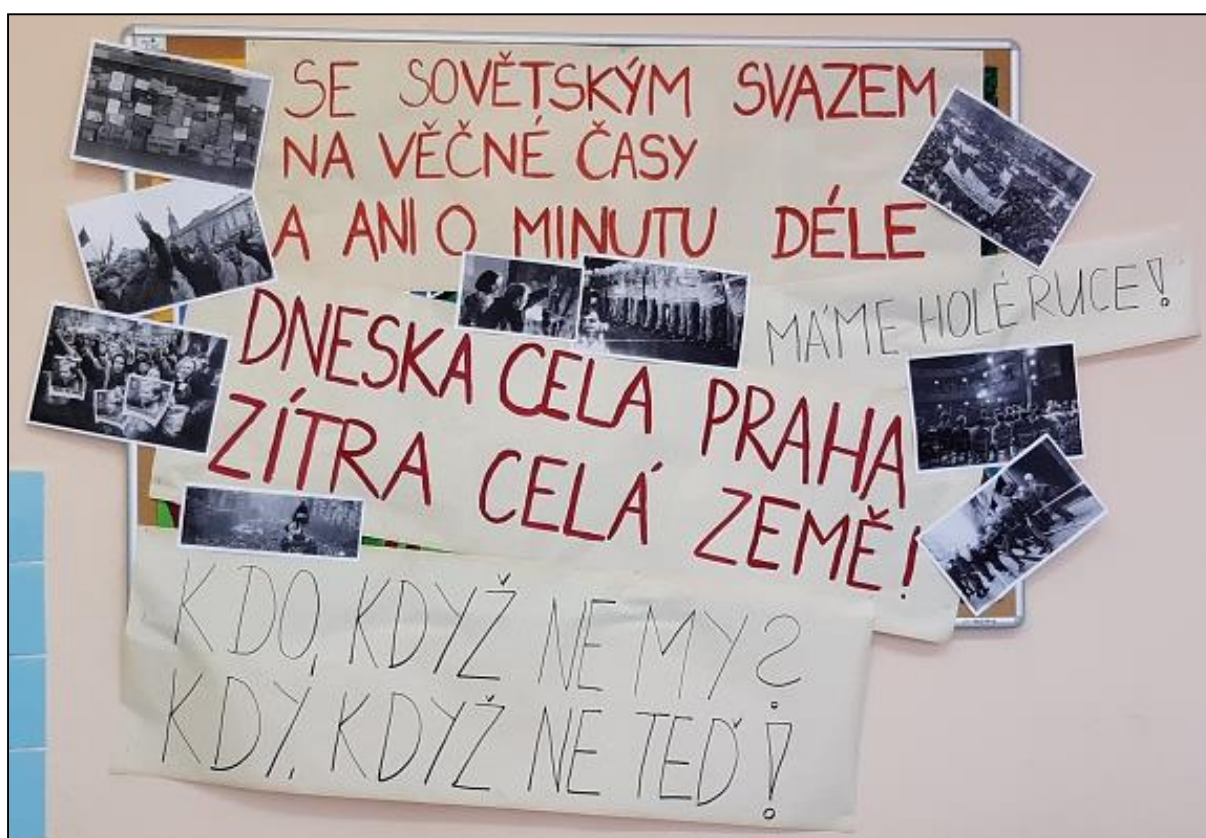 SE SOVĚTSKÝM SVAZEM
NA VĚČNÉ ČASY
A ANI O MINUTU DÉLE
MÁME HOLÉ RUCE!
DNESKA CELA PRAHA
ZÍTRA CELÁ ZEMĚ!
KDO, KDYŽ NE MY?
KDY, KDYŽ NE TEĎ!